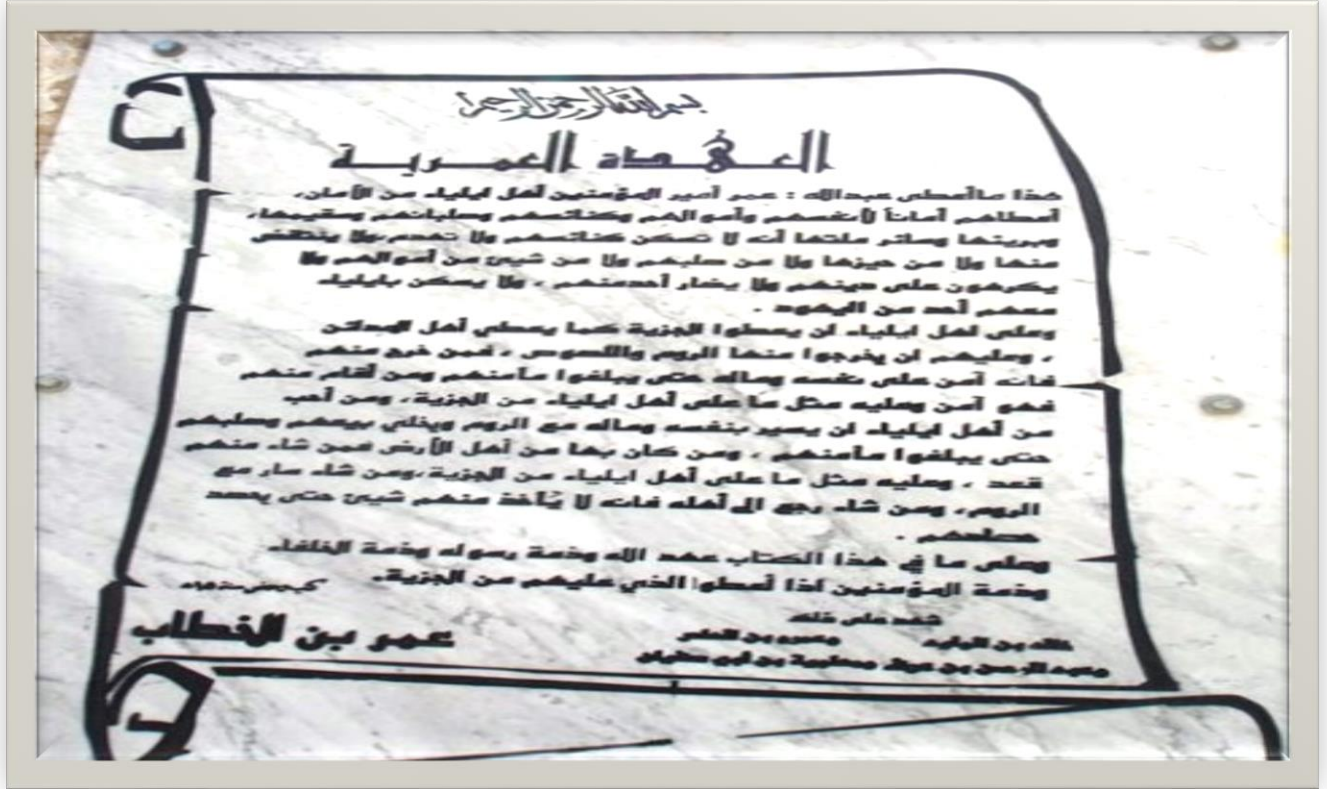 بسم الله الرحمن الرحيم
العهدة العمرية
هذا ما أعطى عبدالله : عمر أمير المؤمنين أهل ايلياء من الأمان،
أعطاهم أماناً لأنفسهم وأموالهم وكنائسهم وصلبانهم وسقيمها،
وبريئها وسائر ملتها أنه لا تسكن كنائسهم ولا تهدم،ولا ينتقض
منها ولا من حيزها ولا من صلبهم ولا من شيئ من أموالهم ولا
يكرهون على دينهم ولا يضار أحدمنهم ، ولا يسكن بايلياء
معهم أحد من اليهود .
وعلى اهل ايلياء ان يعطوا الجزية كما يعطي أهل المدائن
، وعليهم ان يخرجوا منها الروم واللصوص ، فمن خرج منهم
فانه آمن على نفسه وماله حتى يبلغوا مأمنهم ومن أقام منهم
فهو آمن وعليه مثل ما على أهل ايلياء من الجزية، ومن أحب
من أهل ايلياء ان يسير بنفسه وماله مع الروم ويخلي بيعهم وصلبهم
حتى يبلغوا مأمنهم ، ومن كان بها من أهل الأرض فمن شاء منهم
قعد ، وعليه مثل ما على أهل ايلياء من الجزية،ومن شاء سار مع
الروم، ومن شاء رجع الى أهله فانه لا يُأخذ منهم شيئ حتى يحصد
حصادهم .
وعلى ما في هذا الكتاب عهد الله وذمة رسوله وذمة الخلفاء
وذمة المؤمنين اذا أعطوا الذي عليهم من الجزية.
شهد على ذلك
خالد بن الوليد وعمرو بن العاص
وعبد الرحمن بن عوف ومعاوية بن أبي سفيان
عمر بن الخطاب